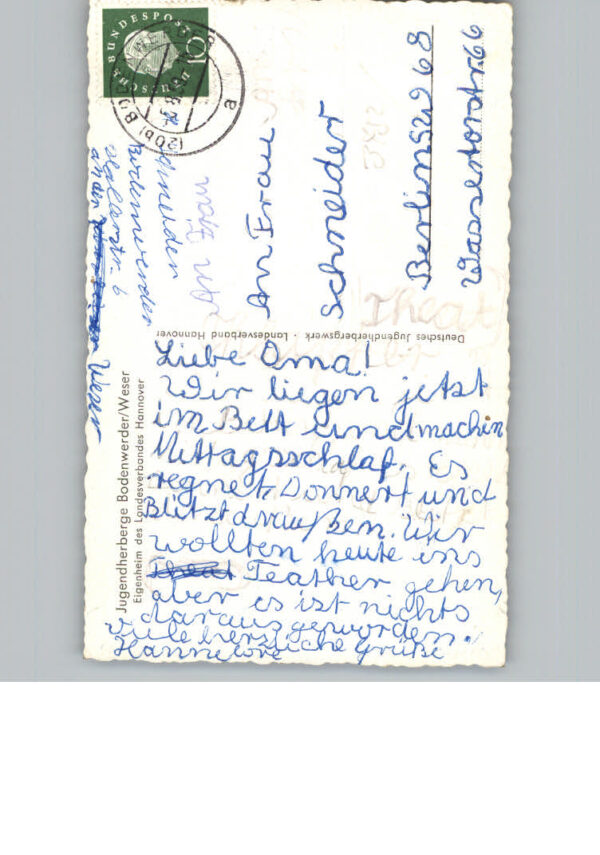 Liebe Oma!
Wir liegen jetzt
im Bett und machen
Mittagsschlaf. Es
regnet, Donnert und
Blitzt draußen. Wir
wollten heute ins
Teather gehen,
aber es ist nichts
daraus geworden.
Viele herzliche Grüße
Hannelore
An Frau
Schneider
Berlin SW 968
Wassertorstr. 66
Bodenwerder
an der Weser
Jugendherberge Bodenwerder/Weser
Eigenheim des Landesverbandes Hannover
Deutsches Jugendherbergswerk · Landesverband Hannover
DEUTSCHE BUNDESPOST
10
(20b)
a